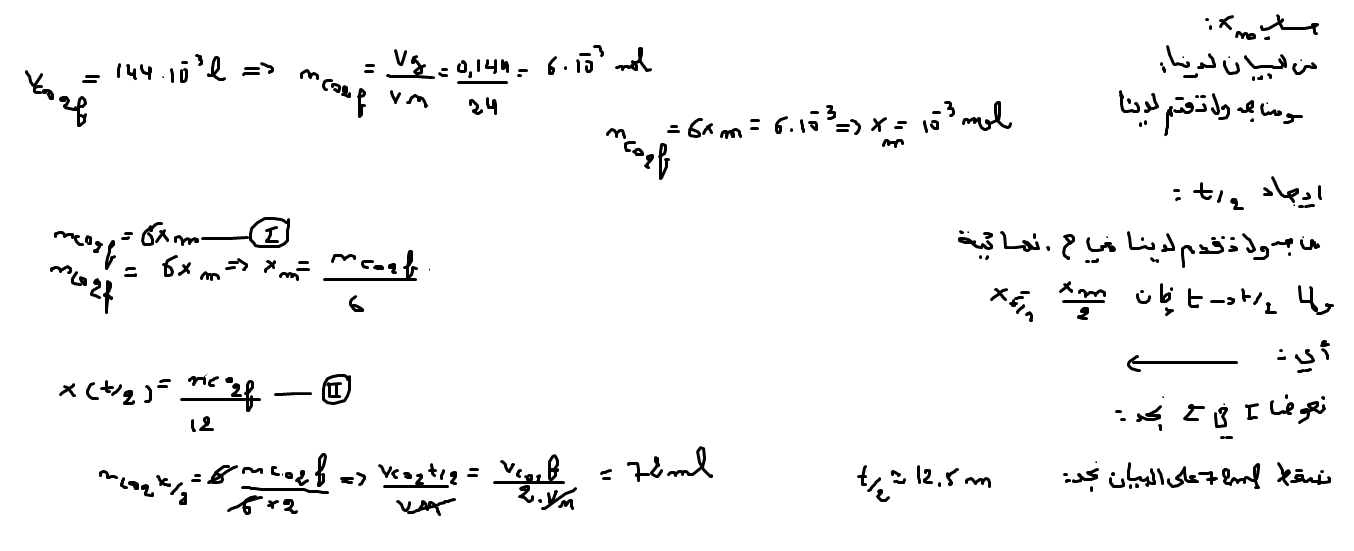 حساب xm:
من البيان لدينا:
V CO2f = 144.10⁻³ l => n CO2f = Vg/VM = 0,144/24 = 6.10⁻³ mol
ومن جدول تقدم لدينا
n CO2f = 6xm = 6.10⁻³ => xm = 10⁻³ mol
ايجاد t1/2 :
من جدول تقدم لدينا في ح. نهائية
n CO2f = 6xm — I
n CO2f = 6xm => xm = n CO2f / 6
ولما t -> t1/2 فإن x t1/2 = xm/2
أي : ←
x(t1/2) = n CO2f / 12 — II
نعوض I في Σ نجد :
n CO2 t1/2 = 6 n CO2f / 6×2 => V CO2 t1/2 / VM = V CO2f / 2.VM = 72 ml
نسقط 72ml على البيان نجد: t1/2 ≈ 12.5 m